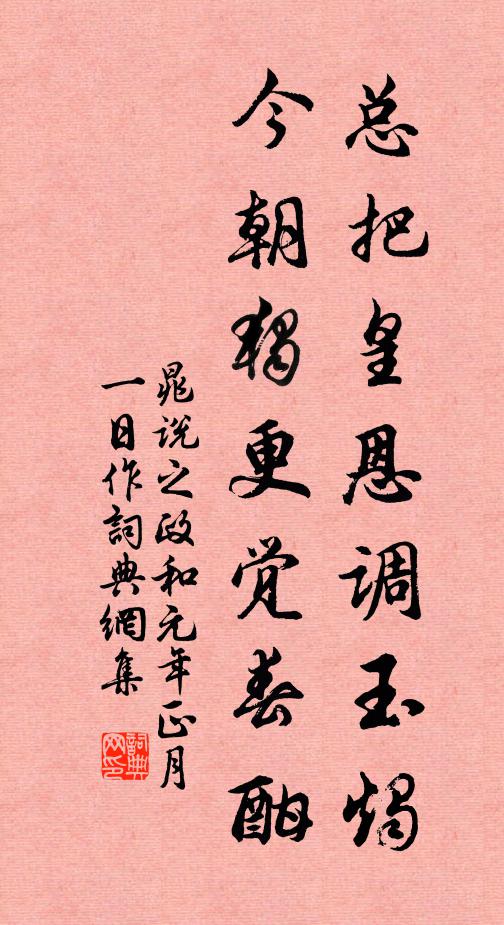 总把皇恩调玉燭
今朝獨更觉春酣
晁说之政和元年正月
一日作詞典網集
詞典网印